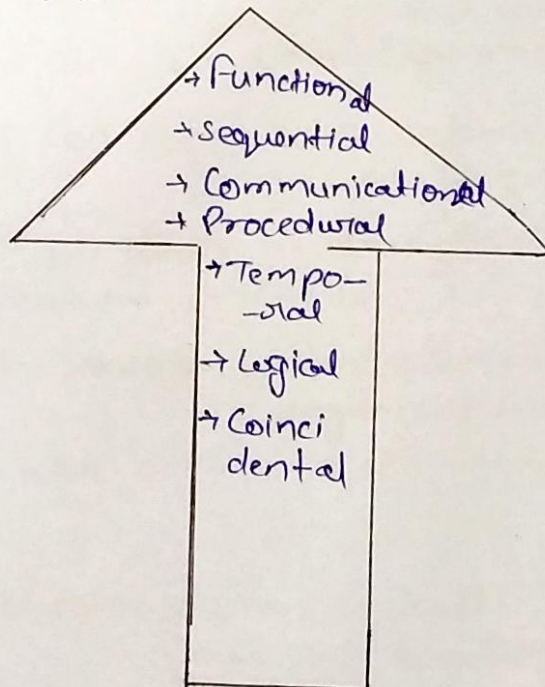 → Functional
→ Sequential
→ Communicational
→ Procedural
→ Tempo-
-ral
→ Logical
→ Coinci
dental